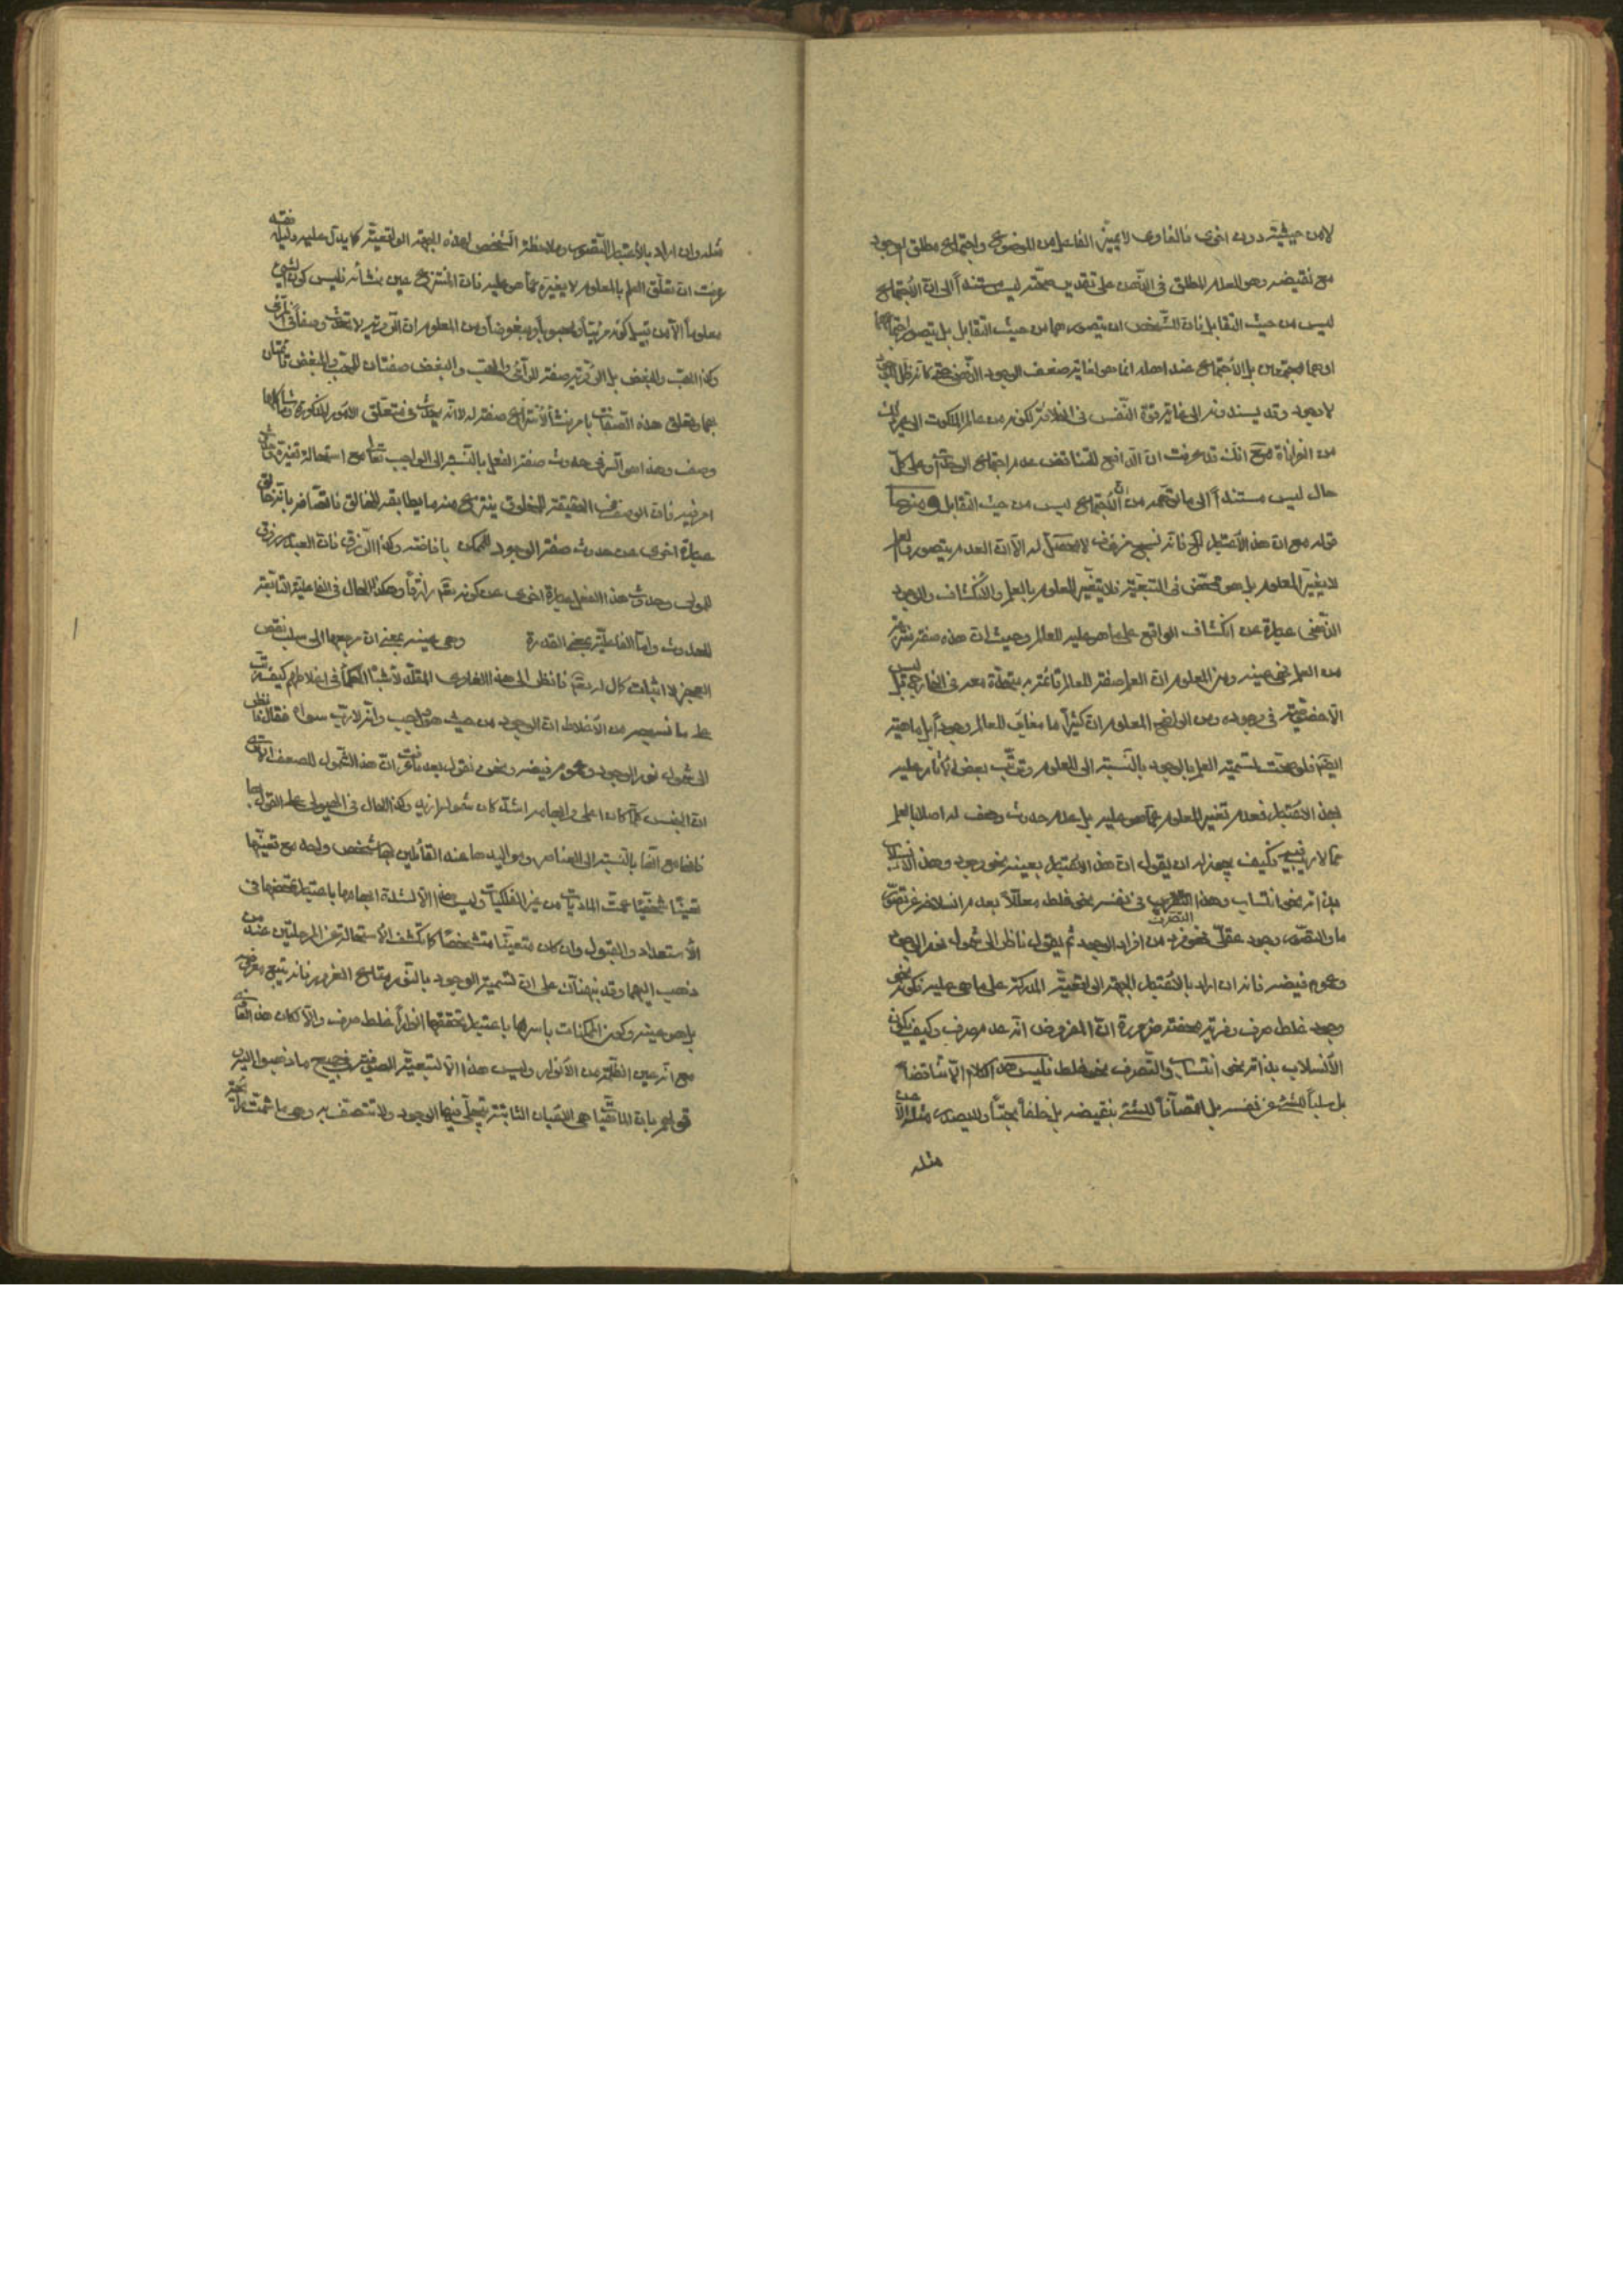 لا من حيثية دون اخرى فالغاوى لا يميز الفاعل من الموضوع واجتماع مطلق الوجود
مع نقيضه وهو العدم المطلق فى الذهن على تقدير صحته ليس مستنداً الى ان الاجتماع
ليس من حيث التقابل فان الشخص ان يتصورهما من حيث التقابل بل يتصور اجتماعهما
او هما مجتمعين بل الاجتماع عند اهله انما هو لغاية ضعف الوجود الذهنى حتى كانه ظل الوجود
لا وجود وقد يسندونه الى غاية قوة النفس فى الخلاقية لكونه من عالم الملكوت الى غير ذلك
من الخرافاة مع انك قد عرفت ان الدافع للتناقض عدم اجتماع الوحدات وعلى كل
حال ليس مستنداً الى ما توهمه من ان الاجتماع ليس من حيث التقابل ومنها
قوله مع ان هذا الاعتبار الخ فانه نسج مزخرف لا محصل له الا ان العدم يتصور والعلم
لا يغير المعلوم بل هو متمحض فى التبعية فلا يتغير المعلوم بالعلم والانكشاف والوجود
الذهنى عبارة عن انكشاف الواقع على ما هو عليه للعالم وحيث ان هذه صفة
من العلم نحو عينه ومن المعلوم ان العلم صفة للعالم قائمة به متحدة معه فى الخارج ليس
الا خصوصية فى وجوده ومن الواضح المعلوم ان كثيراً ما مغاير للعالم وجوداً بل ماهية
ايضا فلو صحت تسمية العلم بالوجود بالنسبة الى المعلوم وترتب بعض الآثار عليه
بهذا الاعتبار فعدم تغير المعلوم عما هو عليه بل عدم حدوث وصف له اصلا بالعلم
مما لا ريب فيه فكيف يجوز له ان يقول ان هذا الاعتبار بعينه نحو وجود وهذا الانسلاب
بذاته نحو انتساب وهذا التصرف فى نفسه نحو خلط معللاً بعدم انسلاخه عن تصور
ما والتصور وجود عقلى فهو فرد من افراد الوجود ثم يقول ناظر الى شمول نور الوجود
وعموم فيضه فانه ان اراد بالاعتبار الجهة الواقعية المدركة على ما هى عليه فكونه نحو
وجود غلط صرف وفرية محضة ضرورة ان المفروض انه عدم صرف وكيف يكون
الانسلاب بذاته نحو انتساب والتصرف نحو خلط فليس هذا الكلام الا تناقضاً
بل سلباً للشئ عن نفسه بل اتصافاً للشئ بنقيضه بل خلفاً بحتاً ولا يصدر عن مثله الا
مثله
مثله وان اراد بالاعتبار التصور وملاحظة الشخص لهذه الجهة الواقعية كما يدل عليه دليله فقد
عرفت ان تعلق العلم بالمعلوم لا يغيره عما هو عليه فان المنتزع عين منشأه فليس كون الشئ
معلوماً الا من قبيل كونه مرئياً ومحبوباً ومبغوضاً ومن المعلوم ان الرؤية لا تحدث وصفاً فى المرئى
وكذا الحب والبغض بل الرؤية صفة للرائى والحب والبغض صفتان للمحب والمبغض قائمتان
بهما وتعلق هذه الصفات بامر منشأ لانتزاع صفة له لا انه يحدث فى متعلق الامور المذكورة
وصف وهذا هو السر فى حدوث صفة الفعل بالنسبة الى الواجب تعالى مع استحالة تغيره وحدوث
امر فيه فان الوصف فى الحقيقة للمخلوق ينتزع منه ما يطابقه للخالق فاتصافه بانه خالق
عبارة اخرى عن حدوث صفة الوجود للممكن بافاضته وكذا الرزق فان العبد مرزوق
للمولى وحدوث هذا الفعل عبارة اخرى عن كونه تعالى رازقاً وهكذا الحال فى الفاعلية التابعة
للحدوث واما الفاعلية بمعنى القدرة وهى عينه بمعنى ان مرجعها الى سلب نقص
العجز لا اثبات كمال له تعالى فانظر الى هذا الغاوى المقلد لاشباه الحكماء فى اغلاطهم كيف رتب
على ما نسجه من الاغلاط ان الوجود من حيث هو واجب وانه لا رب سواه فقال ناظر
الى شمول نور الوجود وعموم فيضه ونحن نقول بعد ما عرفت ان هذا الشمول للضعف
ان الجنس كلما كان اعلى وابهامه اشد كان شموله ازيد وكذا الحال فى الهيولى على القول بها
فانها مع انها بالنسبة الى العناصر ومواليدها عند القائلين بها شخص واحد مع تعينها
تعينا شخصيا عمت الماديات من غير الفلكيات وليس هذا الا لشدة ابهامها باعتبار تمحضها فى
الاستعداد والقبول وان كان متعينا متشخصا كما تكشف الاستحالة عن المرحلتين عند من
ذهب اليهما وقد نبهناك على ان تسمية الوجود بالنور متاع الغرور فانه يتبع معروضه
بل هو عينه وكون الممكنات باسرها باعتبار تحققها انواراً غلط صرف والا لكان هذا الغاوى
مع انه عين الظلمة من الانوار وليس هذا الا لتبعية الصوفية فى جميع ما ذهبوا اليه
قولهم بان الماهيات هى الاعيان الثابتة يتجلى فيها الوجود ولا تتصف به وهى ما شمت رائحة